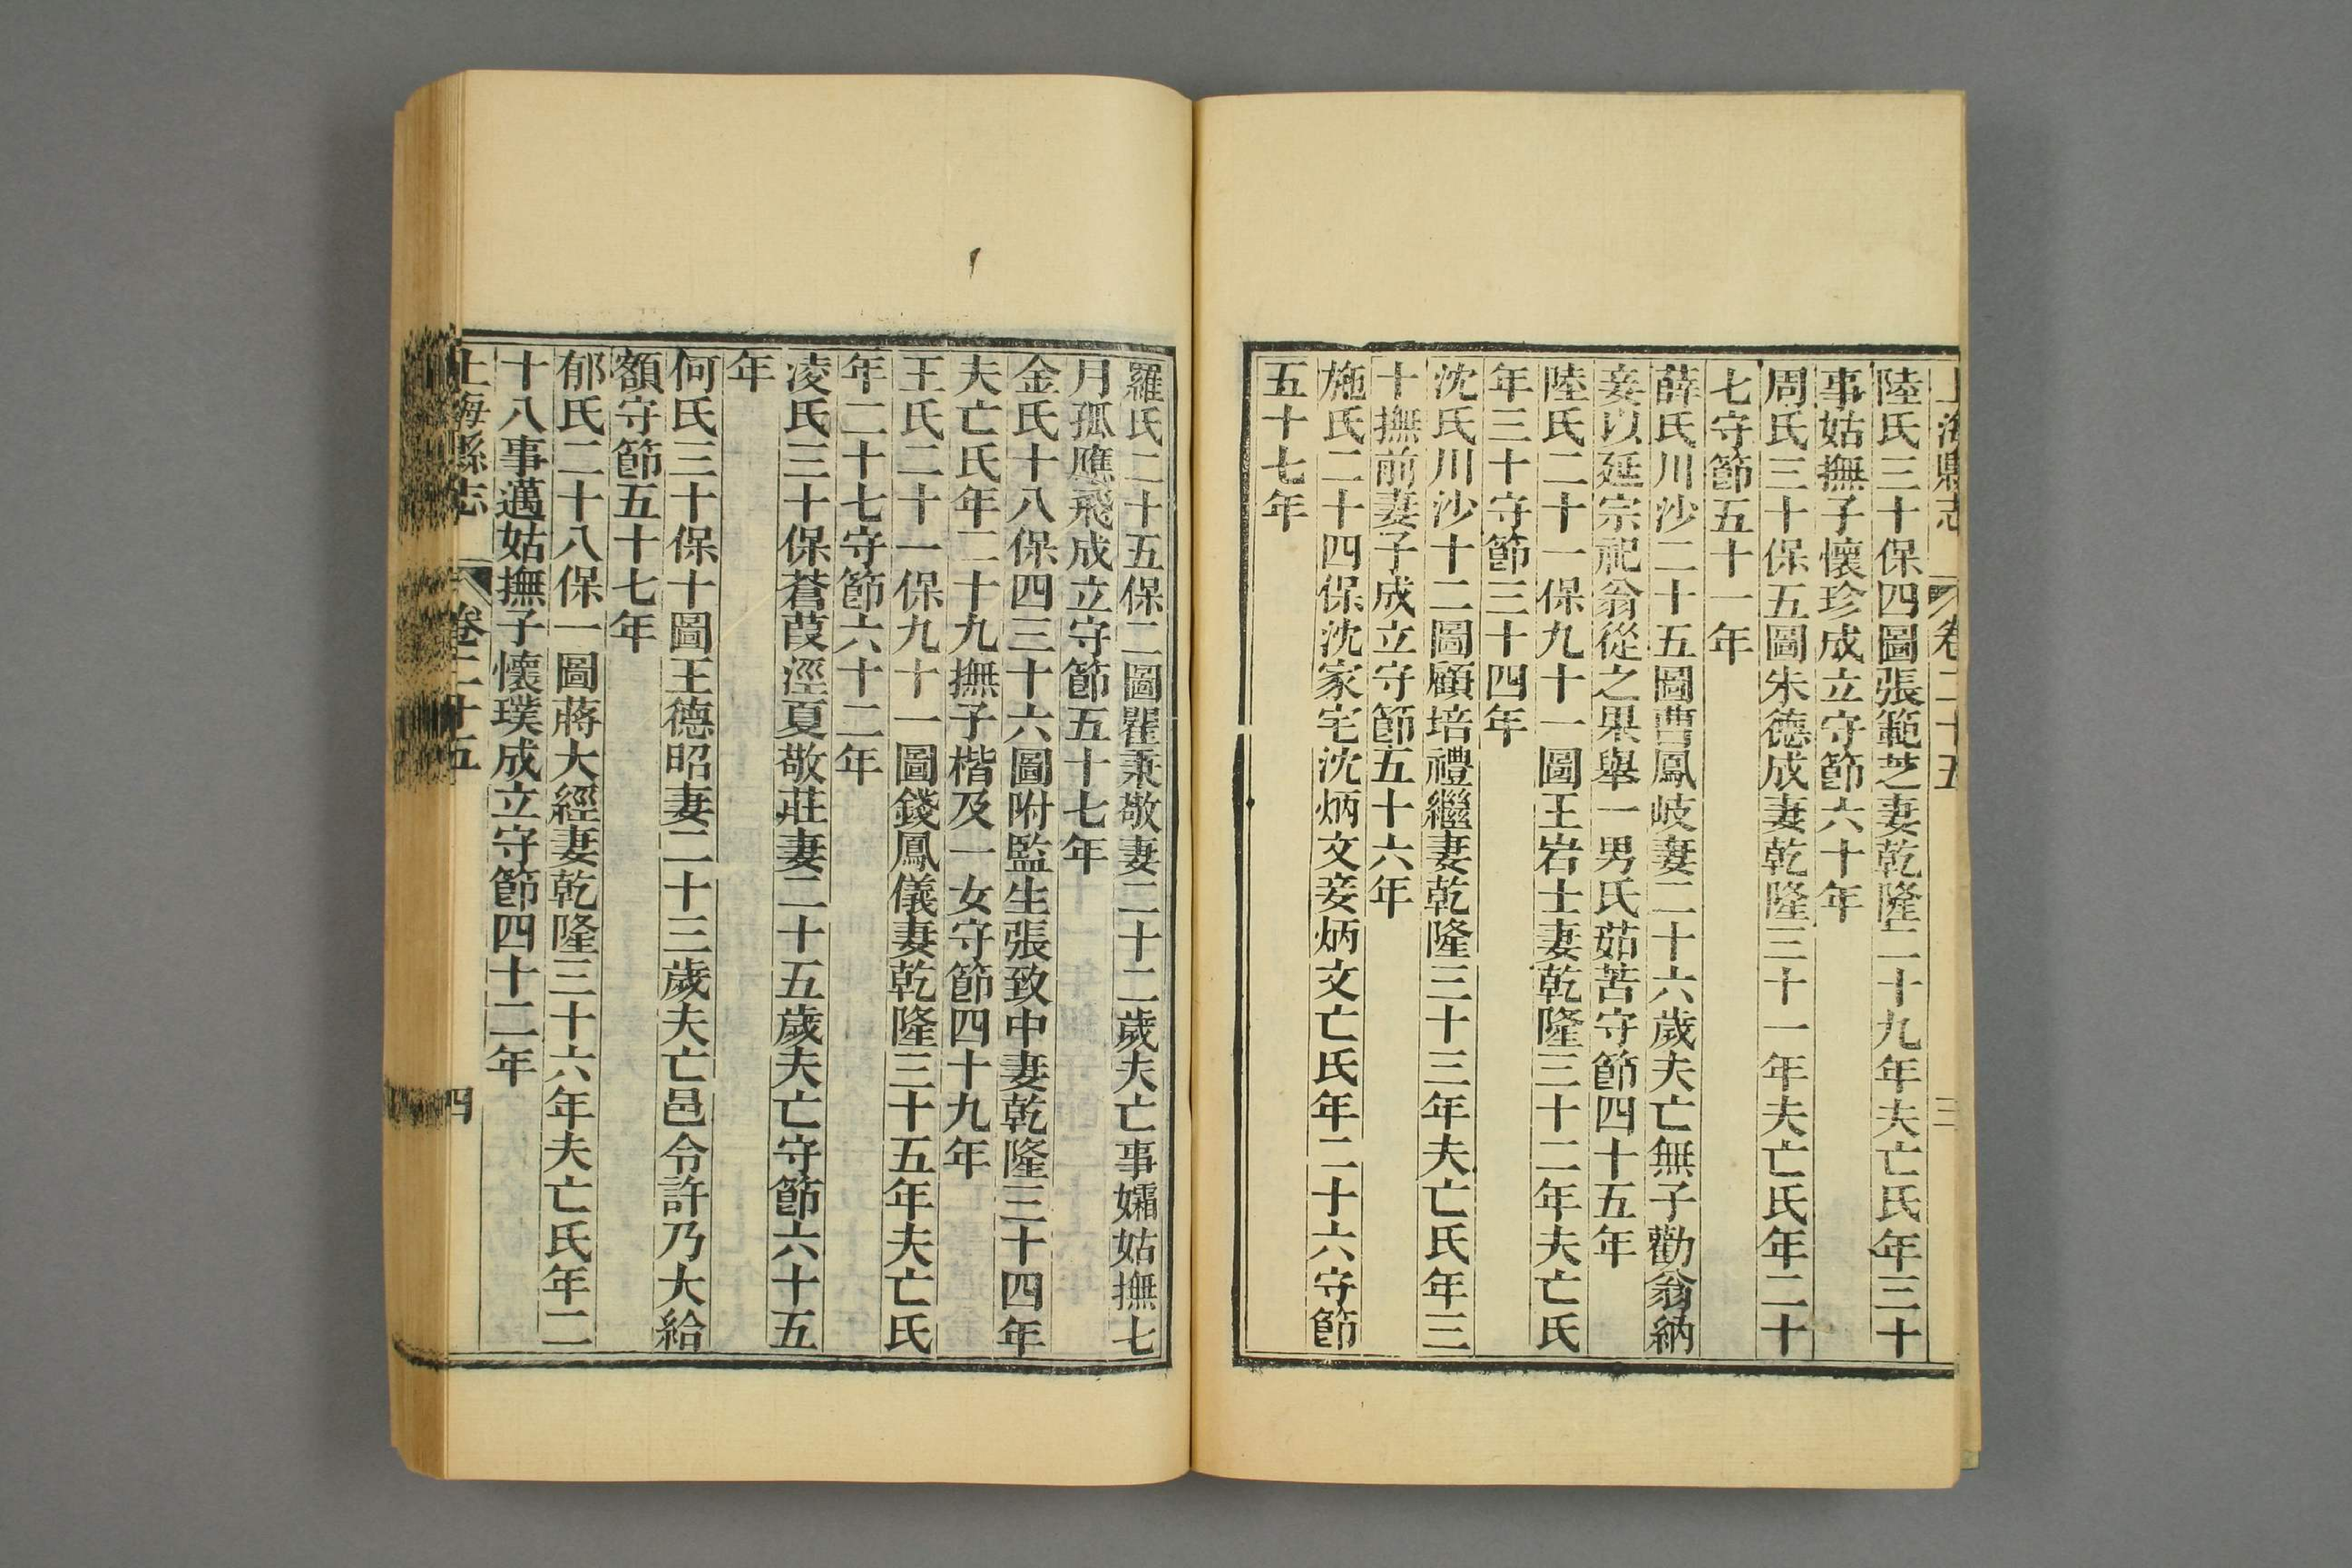 上海縣志 卷二十五 三
陸氏三十保四圖張範芝妻乾隆二十九年夫亡氏年三十
事姑撫子懷珍成立守節六十年
周氏三十保五圖朱德成妻乾隆三十一年夫亡氏年二十
七守節五十一年
薛氏川沙二十五圖曹鳳岐妻二十六歲夫亡無子勸翁納
妾以延宗祀翁從之果舉一男氏茹苦守節四十五年
陸氏二十一保九十一圖王岩士妻乾隆三十二年夫亡氏
年三十守節三十四年
沈氏川沙十二圖顧培禮繼妻乾隆三十三年夫亡氏年三
十撫前妻子成立守節五十六年
施氏二十四保沈家宅沈炳文妾炳文亡氏年二十六守節
五十七年
羅氏二十五保二圖瞿秉敬妻二十二歲夫亡事孀姑撫七
月孤應飛成立守節五十七年
金氏十八保四三十六圖附監生張致中妻乾隆三十四年
夫亡氏年二十九撫子楷及一女守節四十九年
王氏二十一保九十一圖錢鳳儀妻乾隆三十五年夫亡氏
年二十七守節六十二年
凌氏三十保蒼葭涇夏敬莊妻二十五歲夫亡守節六十五
年
何氏三十保十圖王德昭妻二十三歲夫亡邑令許乃大給
額守節五十七年
郁氏二十八保一圖蔣大經妻乾隆三十六年夫亡氏年二
十八事邁姑撫子懷璞成立守節四十二年
上海縣志 卷二十五 四